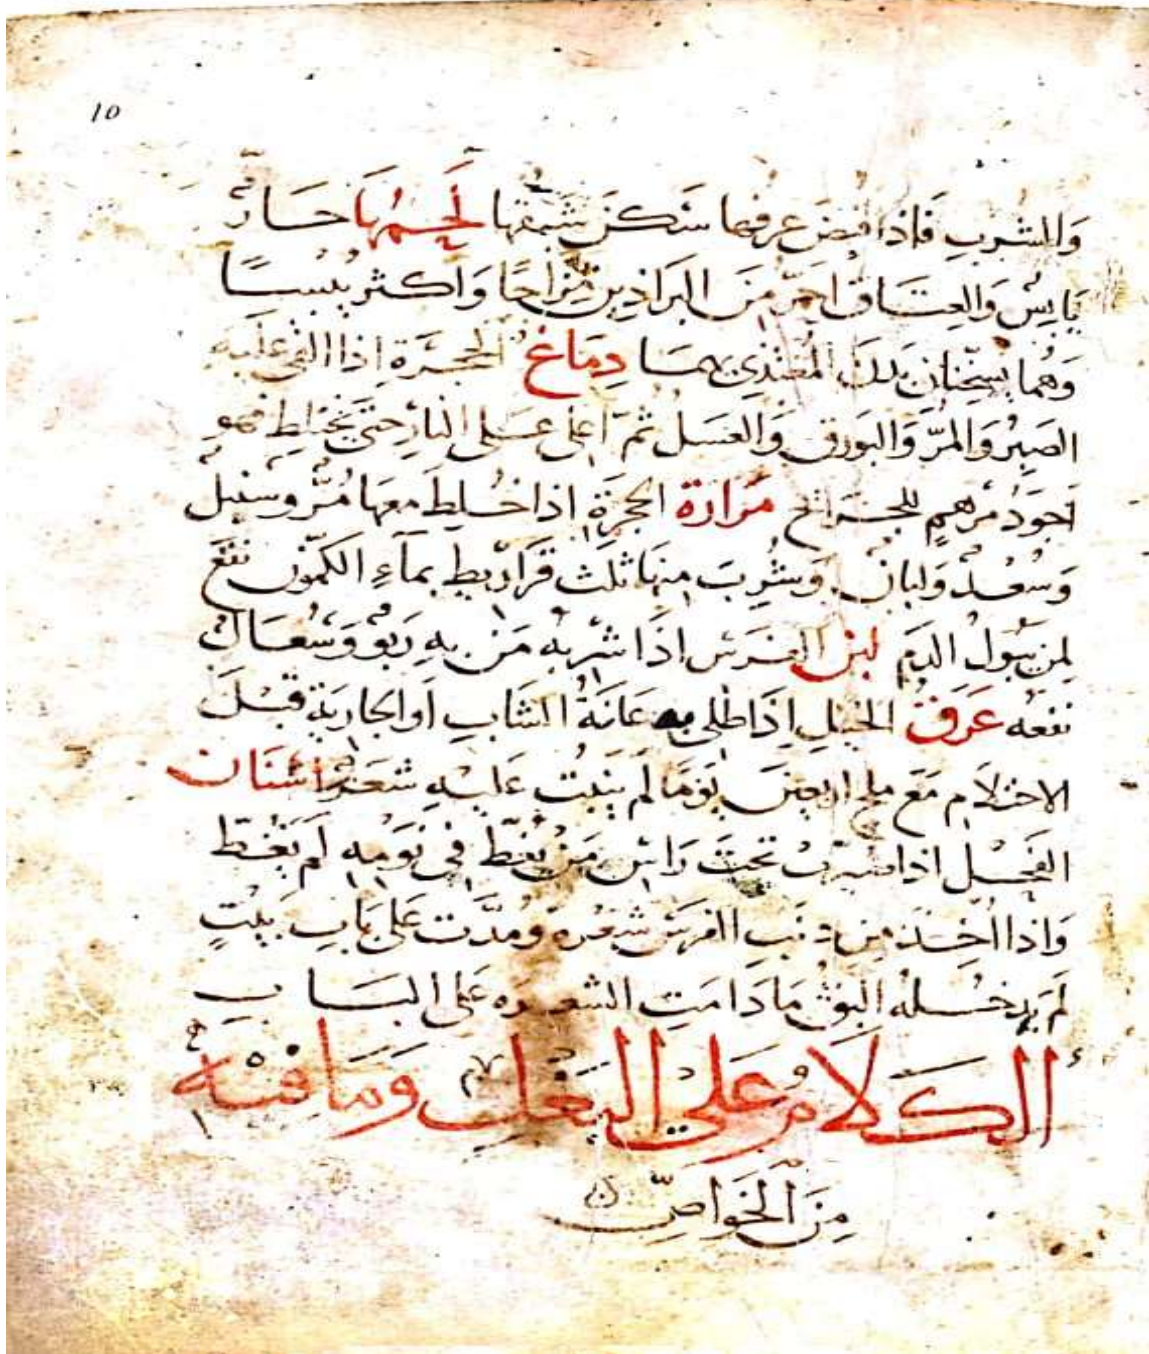 10
وَالشرب فَاذا قُصَّ عرفها سَكنَ شبقها لَحمهَا حَارٌّ
يَابسٌ وَالعتَاقُ احَرّ منَ البَراذين مزاجًا وَاكثر يُبْسًا
وَهُما يُسخّنان بَدن المُغتذي بهمَا دِمَاغ الحجرَةِ اذا القي عَلَيه
الصَبرُ وَالمرّ وَالبَورق وَالعسَل ثمّ اغلى عَلى النار حتى يَختلط فهو
اَجوَدُ مَرهمٍ للجراح مَرارَة الحجرَة اذا خُلِطَ معَها مُرٌّ وسنبلٌ
وَسُعدٌ وَلبانٌ وَشُرِبَ منهَا ثلث قَرَاريط بماءِ الكمّون نفَعَ
لمن يَبُولُ الدَم لبن الفرَس اذَا شربهُ مَن به رَبوٌ وَسُعَالٌ
نفعَه عَرَقُ الخيلِ اِذَا طلي به عَانَةُ الشَاب اَو الجَاريَة قَبْلَ
الاحتلَام مَعَ ملح اربعينَ يَومًا لم يَنبُت عَليْهِ شعَرٌ اسْنَان
الفحل اذا صُيرت تحتَ رَاسِ مَن يَغطّ في نَومِه لَم يَغُطّ
وَاذا اُخِذَ مِن ذنَبِ الفرَس شَعْرَة وَمُدّت عَلى بَابِ بَيْتٍ
لَم يَدخُلهُ البَقُّ مَا دَامَتِ الشعرَه عَلى البَاب
الكَلَام عَلى البَغل وَمَا فيْه
مِنَ الخَوَاصّ